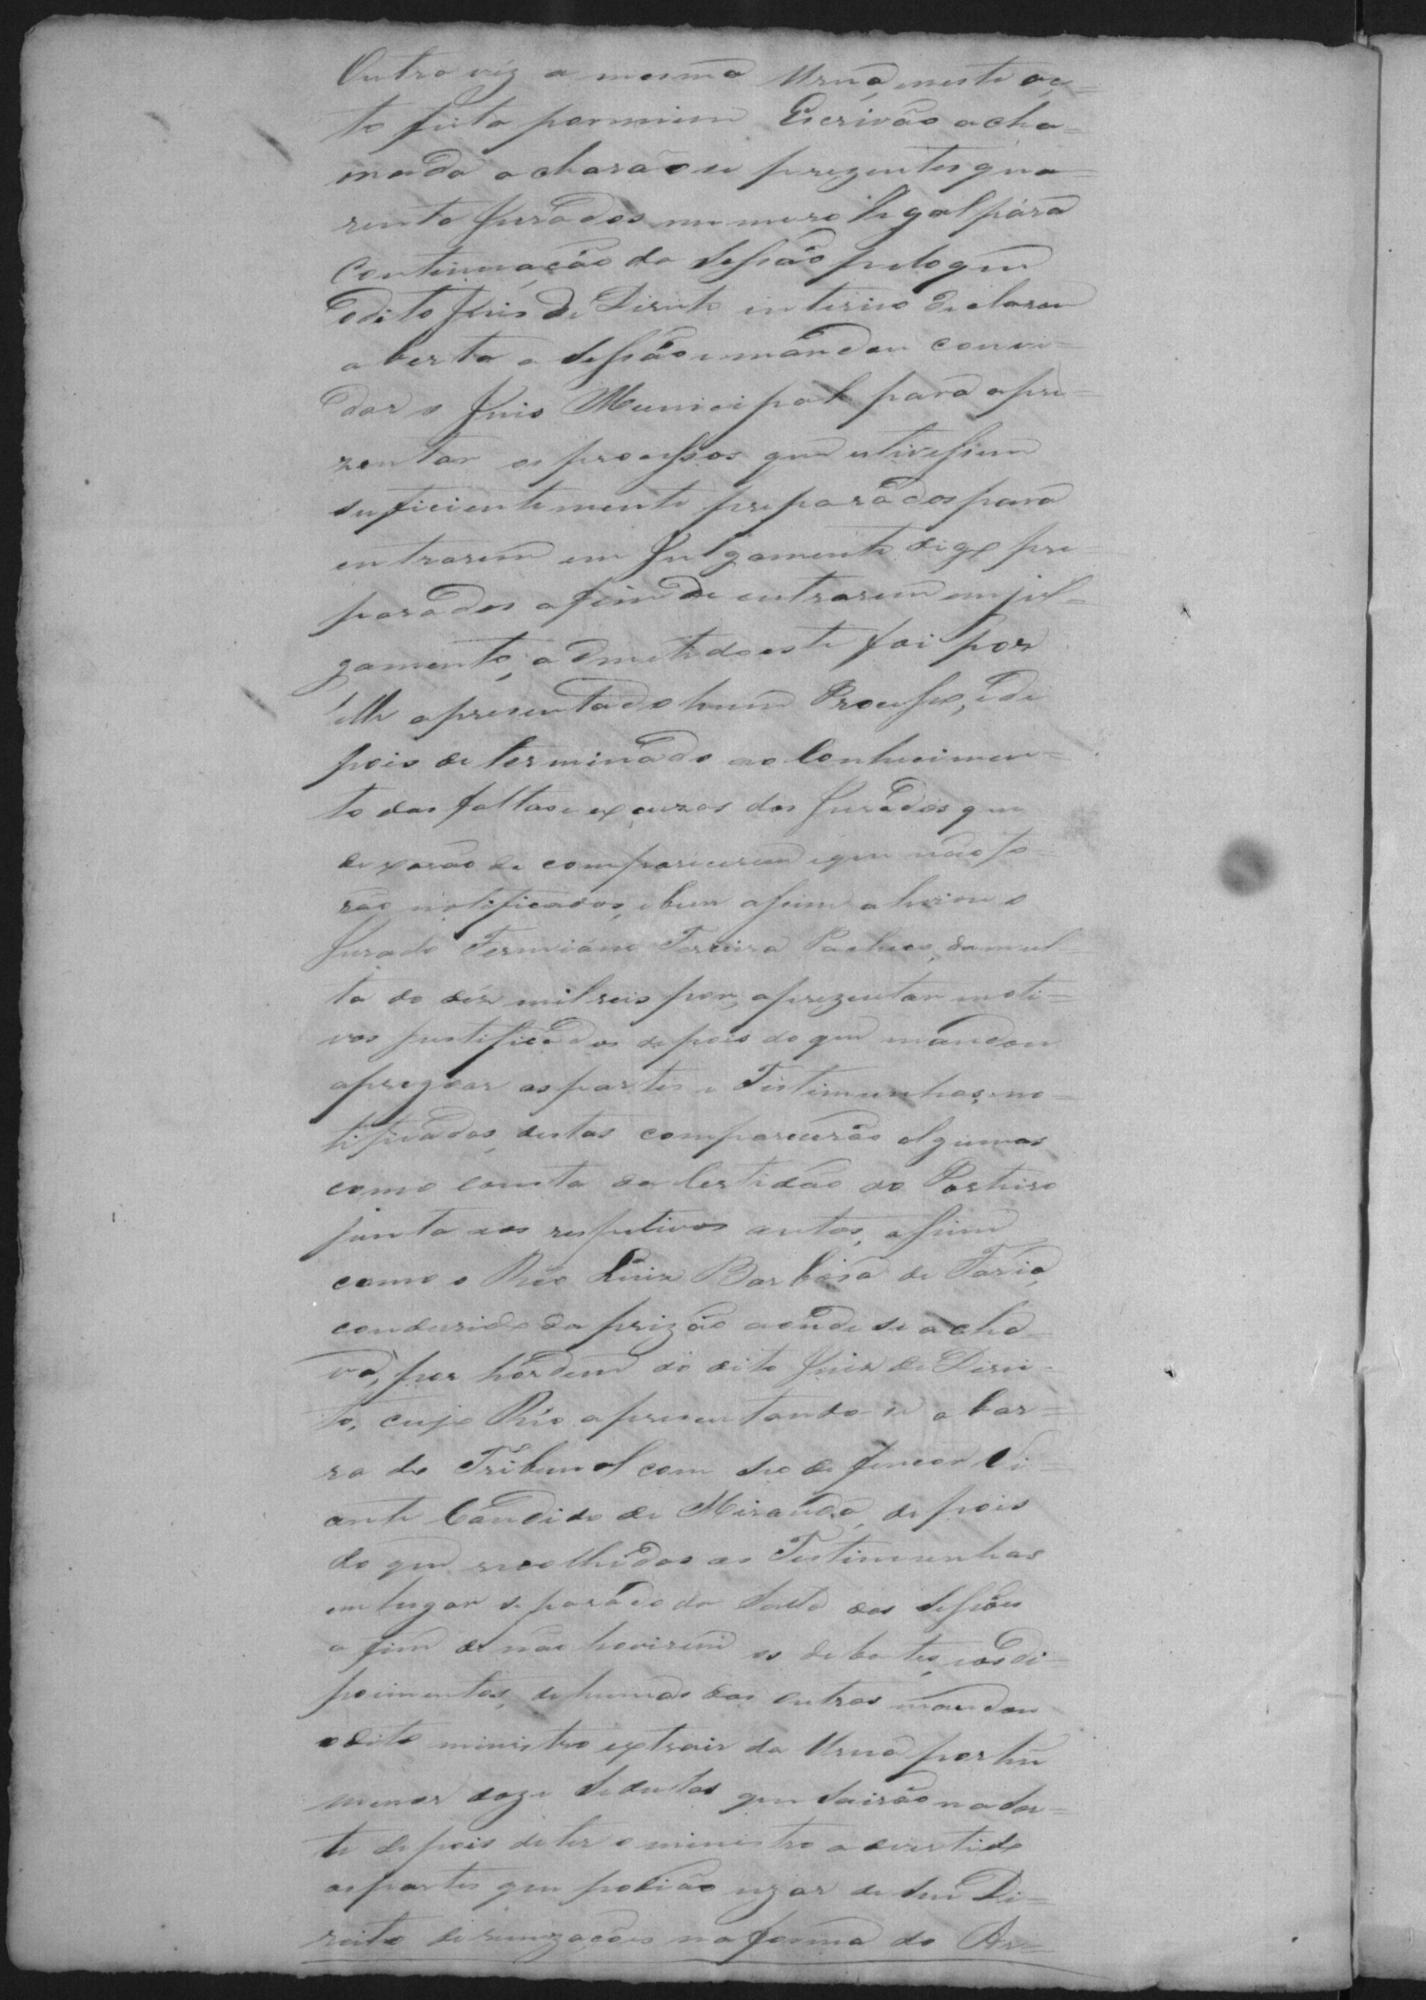 Outra vêz a mesma Urna, neste ac=
to feita por mim Escrivão a cha=
mada acharão se prezentes qua=
renta Jurados numero legal pára
Continuação da Sessão pelo que
o dito Juis de Direito interino declarou
aberta a Sessão e mandou convi=
dar o Juis Municipal para apre=
zentar os processos que estivessem
suficientemente preparados para
entrarem em Julgamento digo pre
parados afim de entrarem em jul=
gamento, admetido este foi por
elle apresentado hum Processo, e de
pois de terminado ao Conhecimen=
to das faltas e excuzas dos Jurados que
deixarão de comparecerem e que não fo=
rão notificados, e bem assim aliviou o
Jurado Firmiano Pacheco, da mul=
ta de dés mil reis por aprezentar moti=
vos justificados depois do que mandou
apregoar as partes e Testimunhas no=
tificadas, destas comparecerão algumas
como consta da Certidão do Porteiro
junta aos respetivos autos, assim
como o Réo Luiz Barboza de Faria,
condusido da prizão aonde se acha=
va, por hordem do dito Juiz de Direi=
to, cujo Réo apresentando-se a bar=
ra do Tribunal com seo defençor Vi=
cente Candido de Miranda, depois
do que recolhidas as Testimunhas
em lugar separado da Salla das Sessões
a fim de não hovirem os debates, e os di=
poimentos, de humas das outras mandou
o dito ministro extrair da Urna por hú
menor doze Sedulas que Sairão na Sor=
te depois de ter o ministro advertido
as partes que podião uzar de seu Di=
reito de recuzaçoes na forma do Ar=